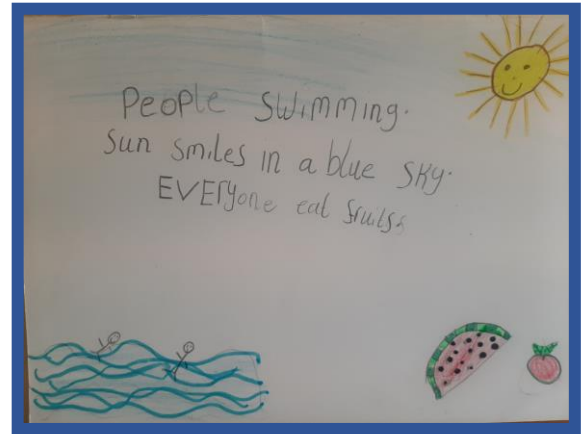 People Swimming.
Sun smiles in a blue sky.
EVEryone eat fruits.